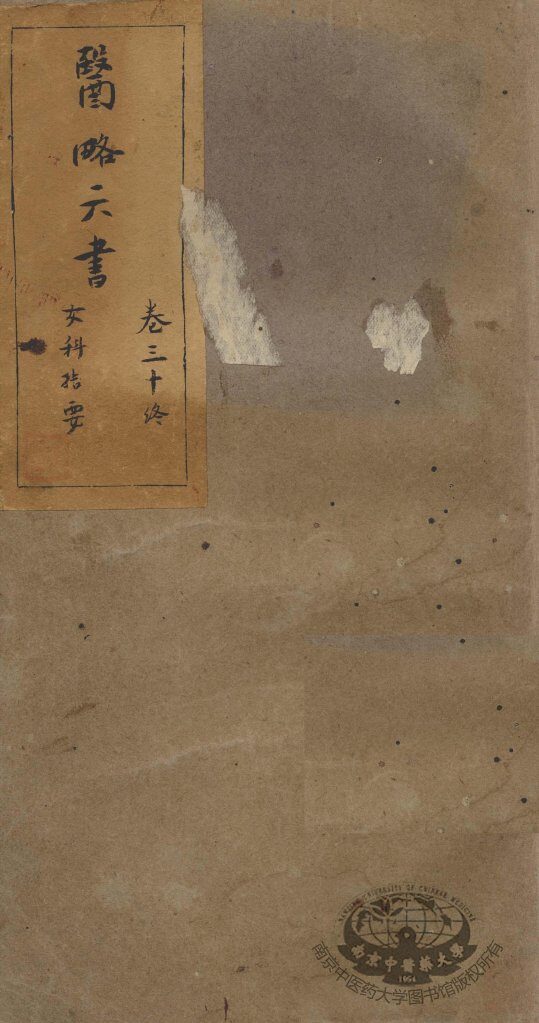 醫略六書
卷三十終
女科指要
NANJING UNIVERSITY OF CHINESE MEDICINE
南京中醫藥大學
1954
南京中医药大学图书馆版权所有